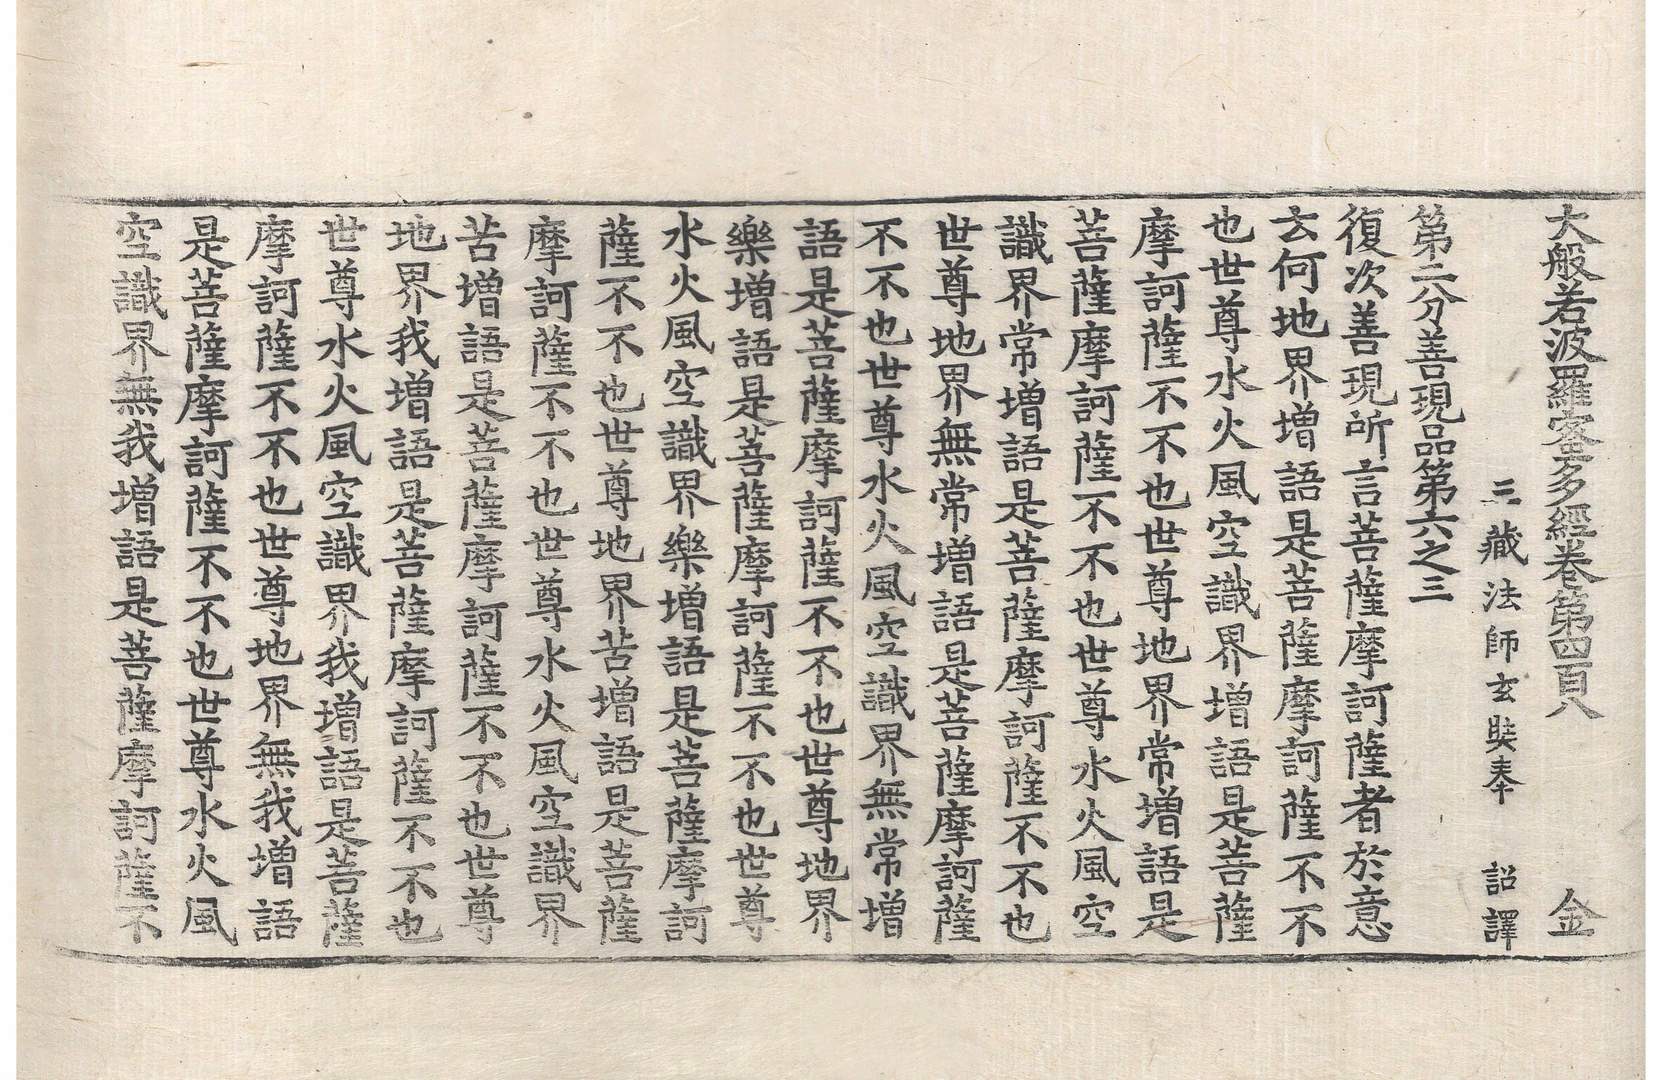 大般若波羅蜜多經卷第四百八 金
三藏法師玄奘奉 詔譯
第二分善現品第六之三
復次善現所言菩薩摩訶薩者於意
云何地界增語是菩薩摩訶薩不不
也世尊水火風空識界增語是菩薩
摩訶薩不不也世尊地界常增語是
菩薩摩訶薩不不也世尊水火風空
識界常增語是菩薩摩訶薩不不也
世尊地界無常增語是菩薩摩訶薩
不不也世尊水火風空識界無常增
語是菩薩摩訶薩不不也世尊地界
樂增語是菩薩摩訶薩不不也世尊
水火風空識界樂增語是菩薩摩訶
薩不不也世尊地界苦增語是菩薩
摩訶薩不不也世尊水火風空識界
苦增語是菩薩摩訶薩不不也世尊
地界我增語是菩薩摩訶薩不不也
世尊水火風空識界我增語是菩薩
摩訶薩不不也世尊地界無我增語
是菩薩摩訶薩不不也世尊水火風
空識界無我增語是菩薩摩訶薩不